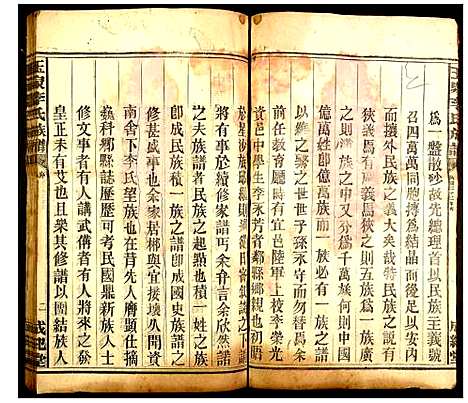 為一盤散吵故先總理首以民族主義號
召四萬萬同胞摶為結晶而後足以安內
而攘外民族之義大矣哉特民族之義有
狹義焉有廣義焉狹以五族為一族廣
之則民族之中又分爲千萬族何也中國
億萬姓卽億萬族而一族必有一族
之鉅以之世世子孫守于勿替焉余
前任教育廳時有宜邑陸軍上校李榮光
資邑中學生李家芳者鄰縣鄉親也初晤
族
將有事於續修家譜丐余弁言余欣然謂
之夫族譜者民族之起點也積一姓之族
卽成民族積一族之譜卽成國史族譜之
修甚盛事也余家居郴與資宜近接
南舍下李氏望族也在昔先人膺顯仕摘
巍科鄉縣誌歷歷可考民國鼎新人才
修文事者有人講武備者有人將來之發
皇正未有艾也且樂其修譜以團結族人
玉泉李氏族譜
二 成紀堂